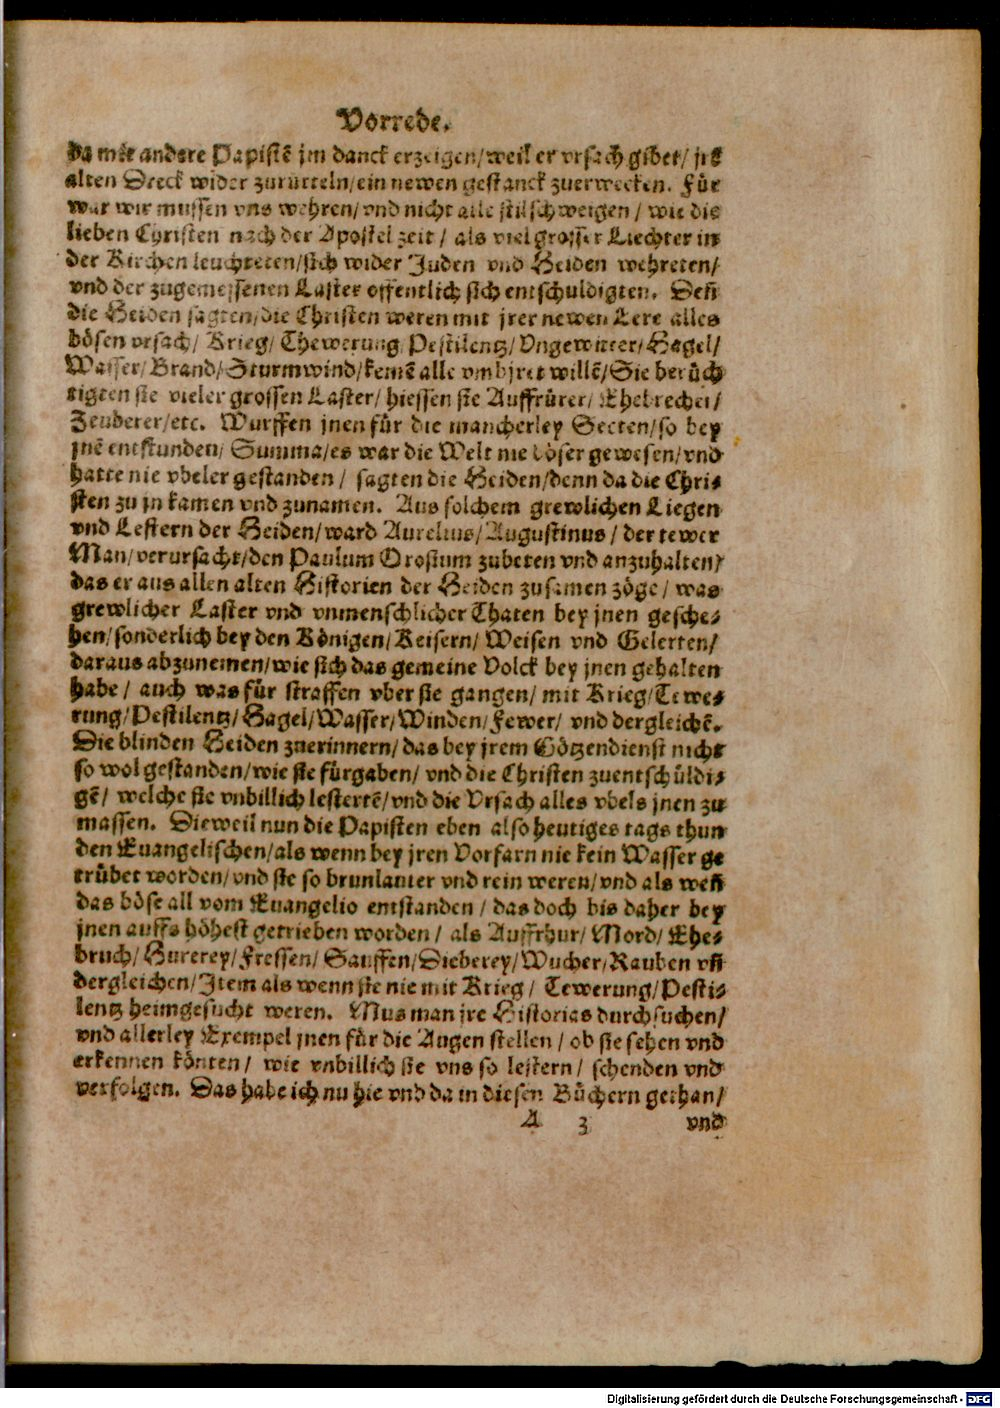 Vorrede.
da mit andere Papistē jm danck erzeigen/weil er vrsach gibet/ jre
alten Dreck wider zurütteln/ein newen gestanck zuerwecken. Für
war wir mussen vns wehren/vnd nicht alle stilschweigen / wie die
lieben Christen nach der Apostel zeit / als viel grosser Liechter in
der Kirchen leuchteten/sich wider Juden vnd Heiden wehreten/
vnd der zugemessenen Laster offentlich sich entschuldigten. Deñ
die Heiden sagten/die Christen weren mit jrer newen Lere alles
bösen vrsach/ Krieg/ Thewerung/Pestilentz/Vngewitter/Hagel/
Wasser/Brand/Sturmwind/kemē alle vmb jret willē/Sie berüch
tigten sie vieler grossen Laster/ hiessen sie Auffrürer/ Ehebrecher/
Zeuberer/etc. Wurffen jnen für die mancherley Secten/so bey
jnē entstunden/ Summa/es war die Welt nie böser gewesen/vnd
hatte nie vbeler gestanden / sagten die Heiden/denn da die Chri-
sten zu jn kamen vnd zunamen. Aus solchem grewlichen Liegen
vnd Lestern der Heiden/ward Aurelius/Augustinus / der tewer
Man/verursacht/den Paulum Orosium zubeten vnd anzuhalten/
das er aus allen alten Historien der Heiden zusamen zöge / was
grewlicher Laster vnd vnmenschlicher Thaten bey jnen gesche-
hen/sonderlich bey den Königen/Keisern/ Weisen vnd Gelerten/
daraus abzunemen/wie sich das gemeine Volck bey jnen gehalten
habe / auch was für straffen vber sie gangen/ mit Krieg/Tewe-
rung/Pestilentz/Hagel/Wasser/Winden/Fewer/ vnd dergleichē.
Die blinden Heiden zuerinnern/das bey jrem Götzendienst nicht
so wol gestanden/wie sie fürgaben/ vnd die Christen zuentschüldi-
gē/ welche sie vnbillich lestertē/vnd die Vrsach alles vbels jnen zu
massen. Dieweil nun die Papisten eben also heutiges tags thun
den Euangelischen/als wenn bey jren Vorfarn nie kein Wasser ge
trübet worden/vnd sie so brunlauter vnd rein weren/vnd als weñ
das böse all vom Euangelio entstanden / das doch bis daher bey
jnen auffs höhest getrieben worden / als Auffrhur/ Mord/ Ehe-
bruch/Hurerey/Fressen/ Sauffen/Dieberey/Wucher/Rauben vñ
dergleichen/Item als wenn sie nie mit Krieg/ Tewerung/Pesti-
lentz heimgesucht weren. Mus man jre Historias durchsuchen/
vnd allerley Exempel jnen für die Augen stellen / ob sie sehen vnd
erkennen könten / wie vnbillich sie vns so lestern/ schenden vnd
verfolgen. Das habe ich nu hie vnd da in diesen Büchern gethan/
A 3 vnd
Digitalisierung gefördert durch die Deutsche Forschungsgemeinschaft - DFG